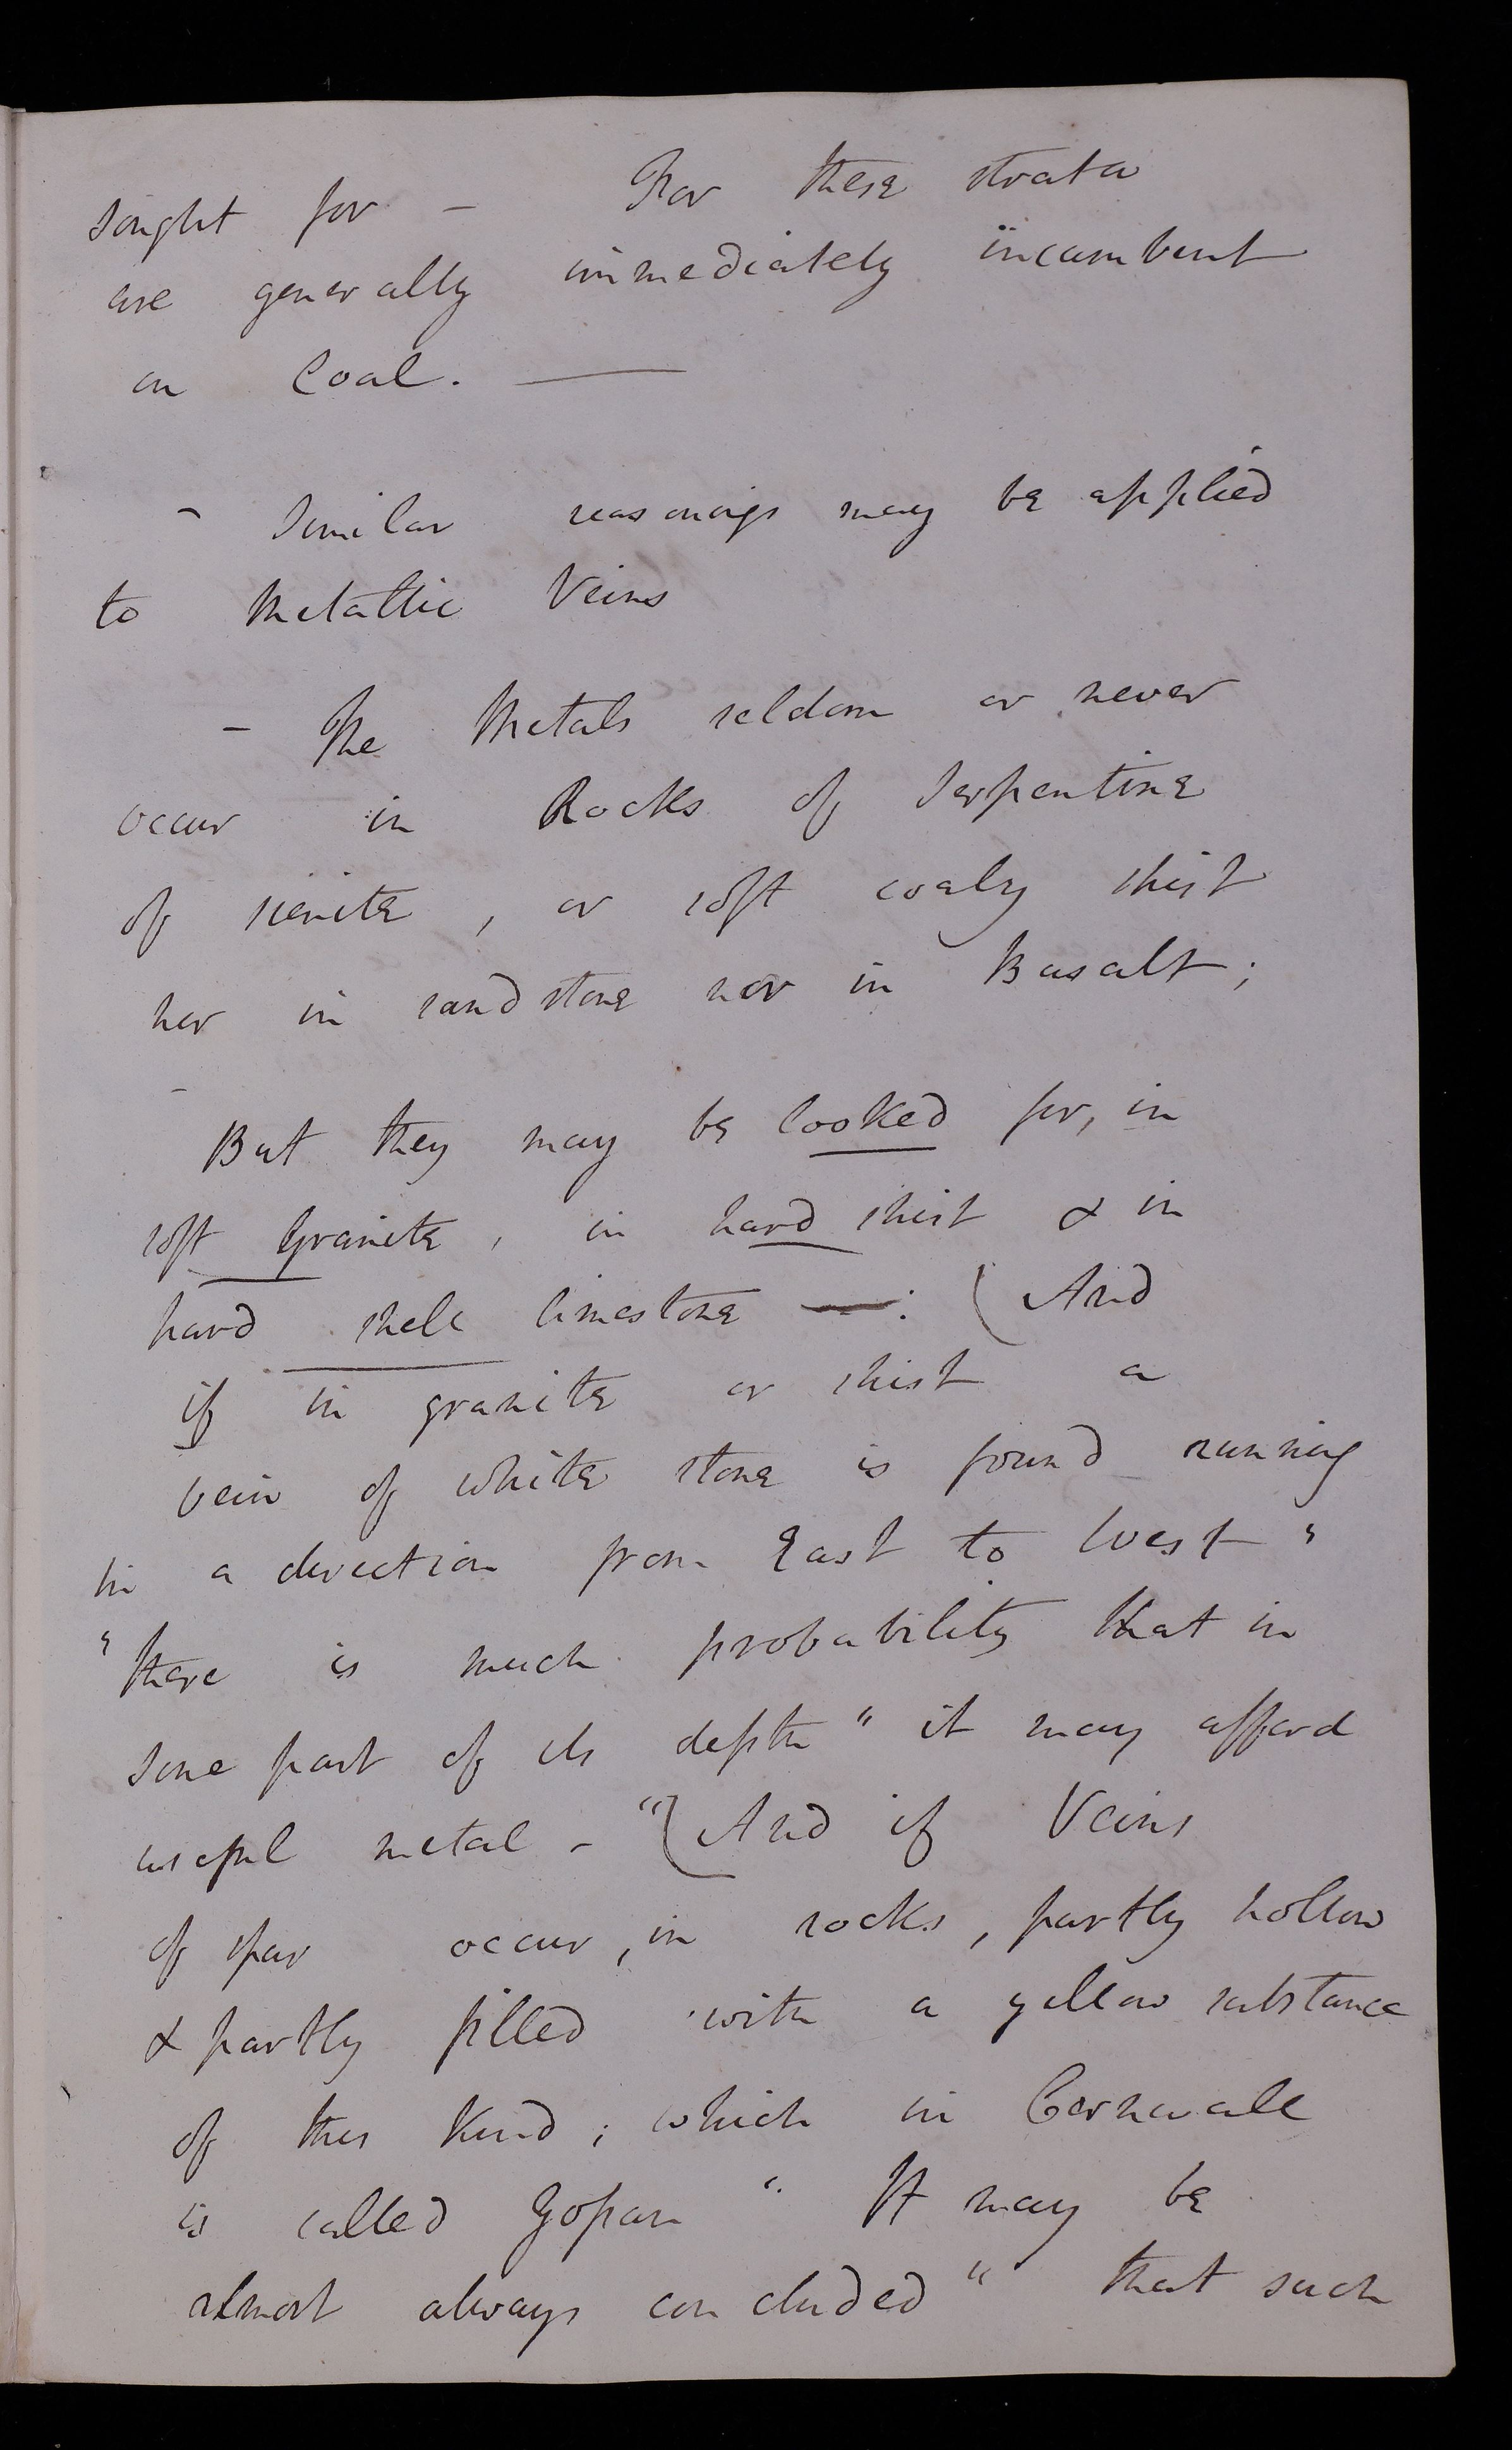 sought for – For these strata
are generally immediately incumbent
on Coal. —
– Similar reasonings may be applied
to Metallic Veins
– The Metals seldom or never
occur in Rocks of Serpentine
of sienite, or soft coaly shist
nor in sandstone nor in Basalt;
– But they may be looked for, in
soft Granite, in hard shist & in
hard shell limestone —: (And
if in granite or shist a
vein of white stone is found running
in a direction from East to West "
"there is much probability that in
some part of its depth " it may afford
useful metal – "(And if Veins
of spar occur, in rocks, partly hollow
& partly filled with a yellow substance
of this Kind; which in Cornwall
is called Gossan " It may be
almost always concluded " that such